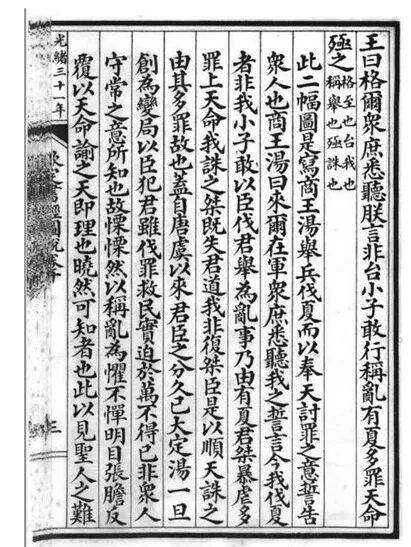 王曰格爾眾庶悉聽朕言非台小子敢行稱亂有夏多罪天命
殛之
格至也台我也
稱舉也殛誅也
此二幅圖是寫商王湯舉兵伐夏而以奉天討罪之意誓告
眾人也商王湯曰來爾在軍眾庶悉聽我之誓言今我伐夏
者非我小子敢以臣伐君舉為亂事乃由有夏君桀暴虐多
罪上天命我誅之桀既失君道我非復桀臣是以順天誅之
由其多罪故也蓋自唐虞以來君臣之分久已大定湯一旦
創為變局以臣犯君雖伐罪救民實迫於萬不得已非眾人
守常之意所知也故慄慄然以稱亂為懼不憚明目張膽反
覆以天命諭之天即理也曉然可知者也此以見聖人之難
光緒三十一年
三